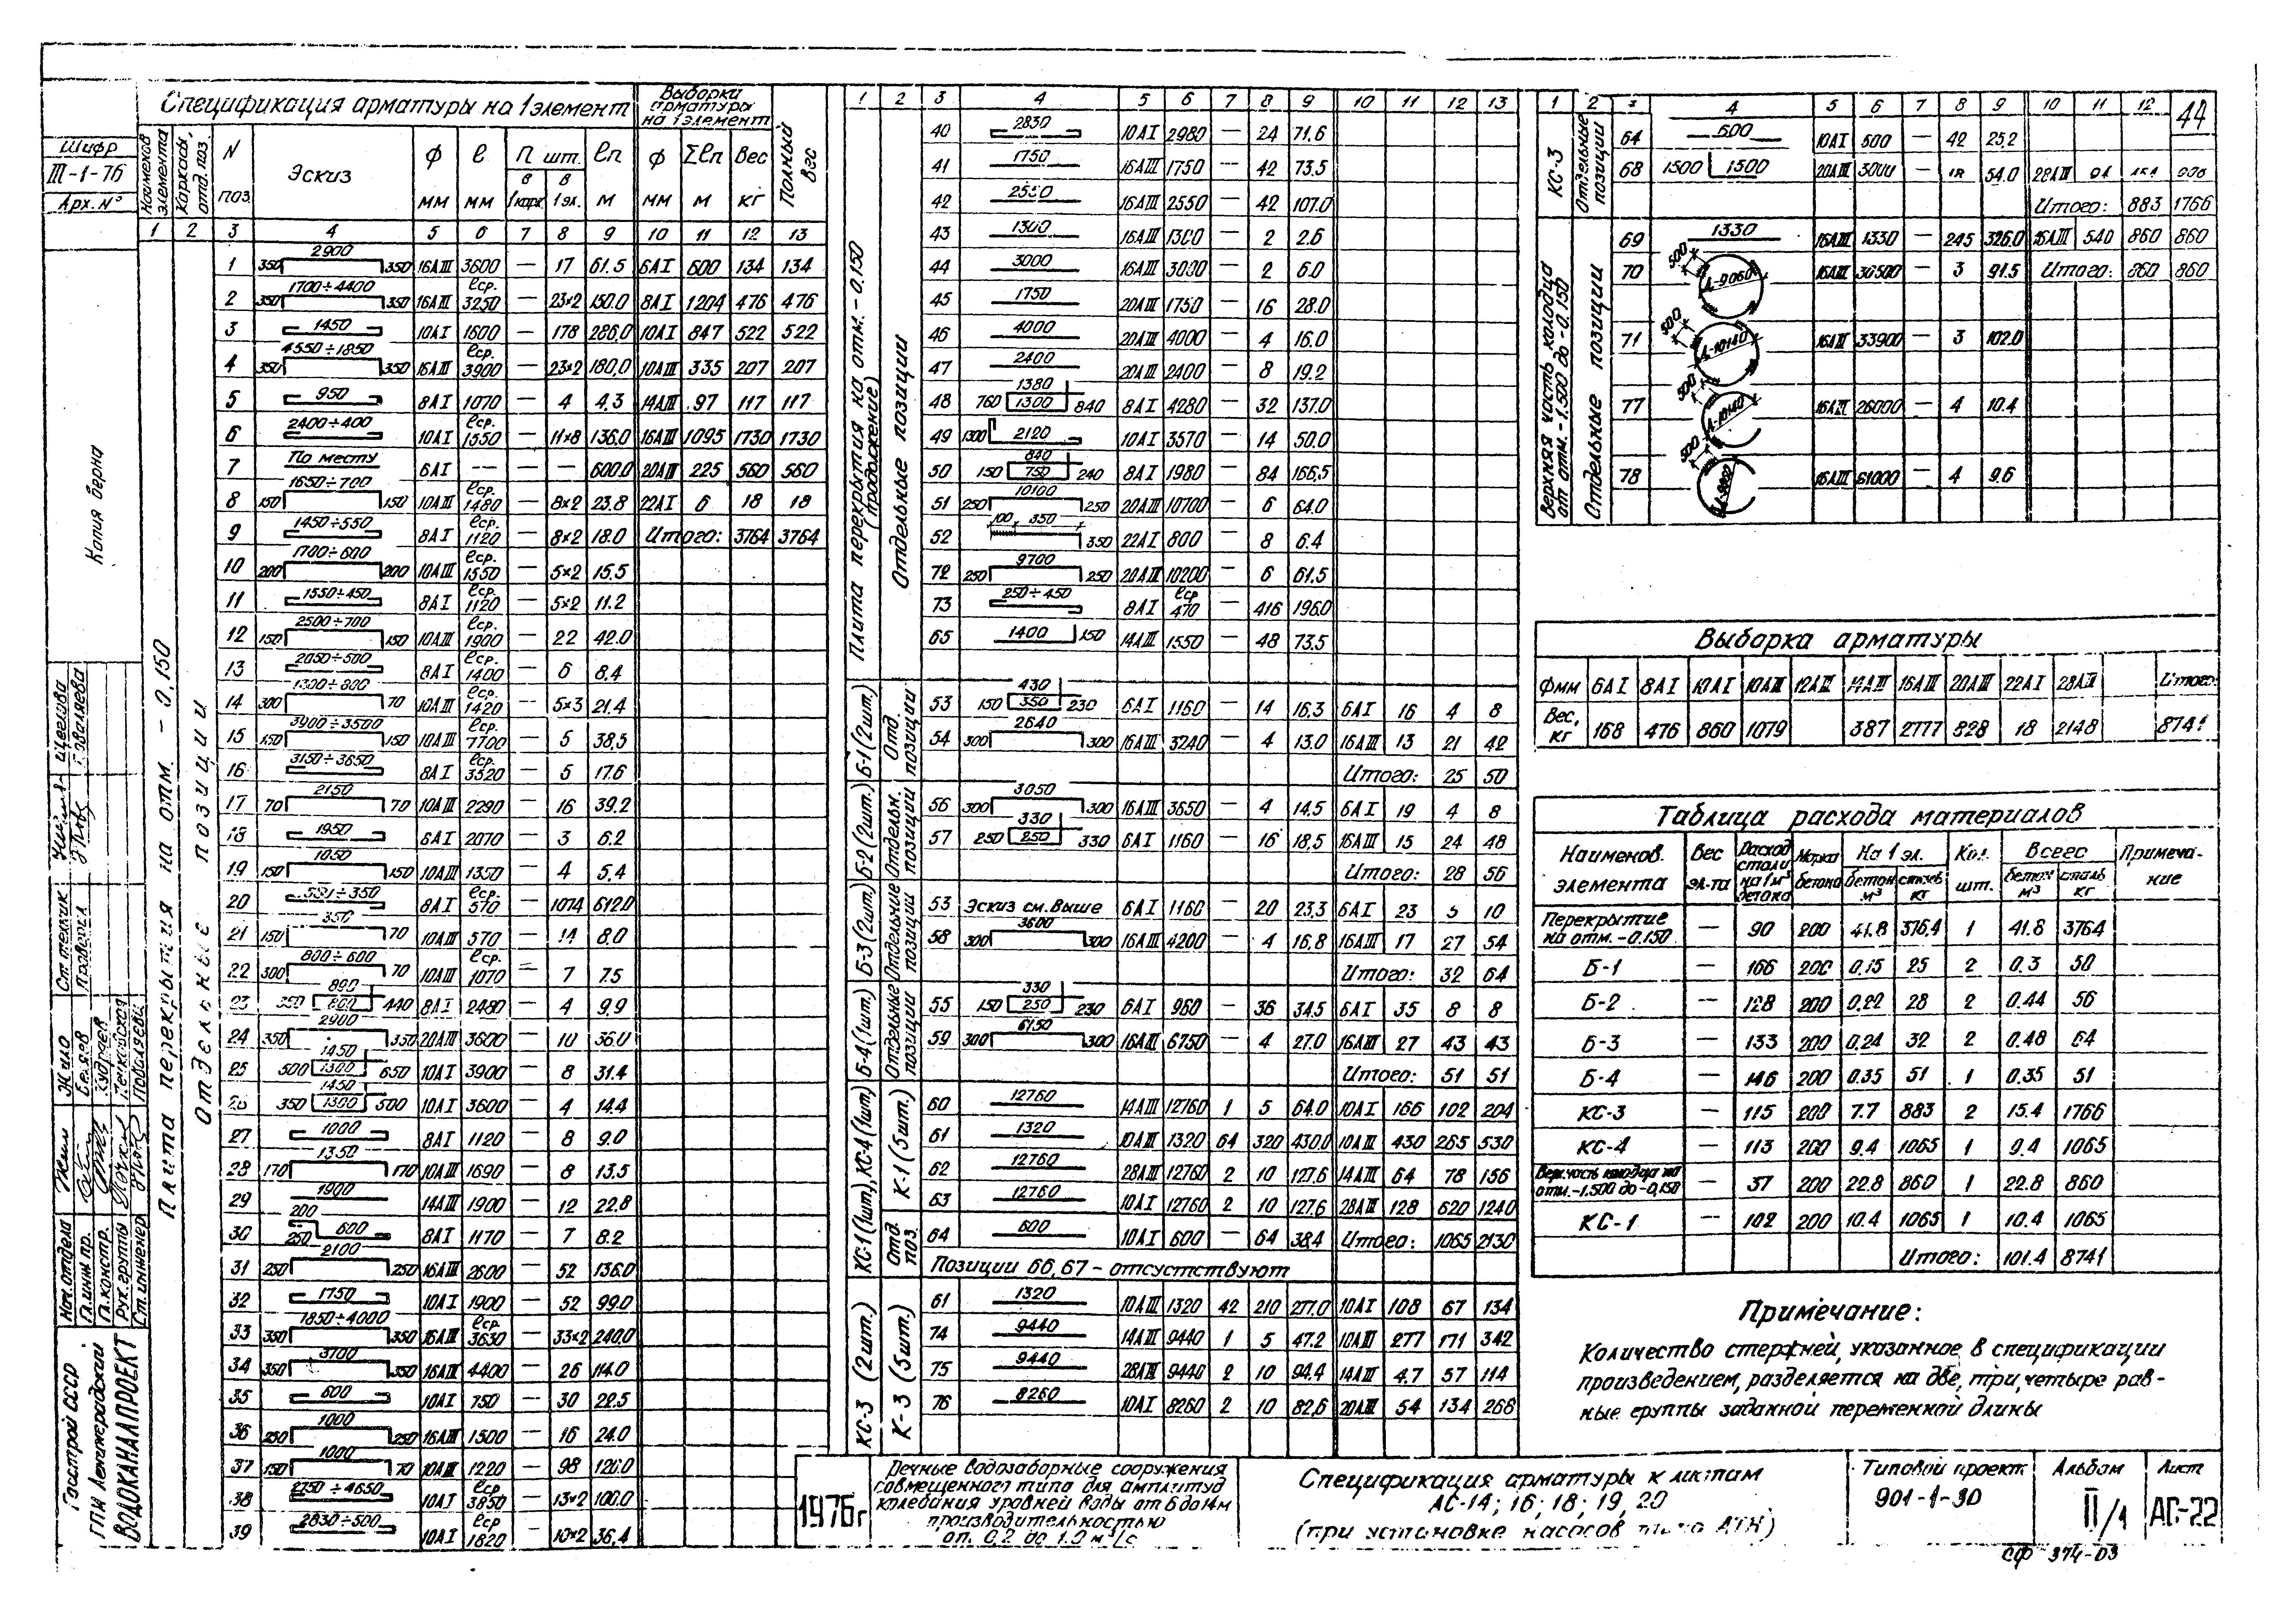 44
Шифр
III-1-76
Арх. №
Копия верна
Спецификация арматуры на 1 элемент
Выборка арматуры на 1 элемент
Полный вес
Наименов. элемента
Каркасы, отд. поз.
N поз.
Эскиз
ф мм
ℓ мм
п шт.
в 1 карк
в 1 эл.
ℓп м
ф мм
Σℓп м
Вес кг
1 2 3 4 5 6 7 8 9 10 11 12 13
Плита перекрытия на отм. - 0,150
Отдельные позиции
1 350 2900 350 16АIII 3600 — 17 61.5 6АI 600 134 134
2 350 1700÷4400 350 16АIII ℓср. 3250 — 23×2 150.0 8АI 1204 476 476
3 1450 10АI 1600 — 178 286,0 10АI 847 522 522
4 350 4550÷1850 350 16АIII ℓср. 3900 — 23×2 180,0 10АIII 335 207 207
5 950 8АI 1070 — 4 4.3 14АIII 97 117 117
6 2400÷400 10АI ℓср. 1550 — 11×8 136,0 16АIII 1095 1730 1730
7 По месту 6АI — — — 600.0 20АIII 225 560 560
8 150 1650÷700 150 10АIII ℓср. 1480 — 8×2 23.8 22АI 6 18 18
9 1450÷550 8АI ℓср. 1120 — 8×2 18.0 Итого: 3764 3764
10 200 1700÷600 200 10АIII ℓср. 1550 — 5×2 15.5
11 1550÷450 8АI ℓср. 1120 — 5×2 11.2
12 150 2500÷700 150 10АIII ℓср. 1900 — 22 42.0
13 2050÷500 8АI ℓср. 1400 — 6 8,4
14 300 1300÷800 70 10АIII ℓср. 1420 — 5×3 21.4
15 150 3900÷3500 150 10АIII ℓср. 7700 — 5 38,5
16 3150÷3650 8АI ℓср. 3520 — 5 17.6
17 70 2150 70 10АIII 2290 — 16 39.2
18 1950 6АI 2070 — 3 6.2
19 150 1050 150 10АIII 1350 — 4 5.4
20 8АI ℓср. 570 — 1074 612.0
21 150 350 70 10АIII 570 — 14 8.0
22 300 800÷600 70 10АIII ℓср. 1070 — 7 7.5
23 350 890 800 440 8АI 2480 — 4 9.9
24 350 2900 350 20АIII 3600 — 10 36.0
25 500 1450 1300 650 10АI 3900 — 8 31.4
26 350 1450 1300 500 10АI 3600 — 4 14.4
27 1000 8АI 1120 — 8 9.0
28 170 1350 170 10АIII 1690 — 8 13.5
29 1900 14АIII 1900 — 12 22.8
30 200 250 600 8АI 1170 — 7 8.2
31 250 2100 250 16АIII 2600 — 52 136.0
32 1750 10АI 1900 — 52 99.0
33 350 1850÷4000 350 16АIII ℓср 3630 — 33×2 240.0
34 350 3700 350 16АIII 4400 — 26 114.0
35 600 10АI 750 — 30 22.5
36 250 1000 250 16АIII 1500 — 16 24.0
37 150 1000 70 10АIII 1220 — 98 120.0
38 2750÷4650 10АI ℓср 3850 — 13×2 100.0
39 2830÷500 10АI ℓср 1820 — 10×2 36,4
1 2 3 4 5 6 7 8 9 10 11 12 13
Плита перекрытия на отм. - 0.150 (продолжение)
Отдельные позиции
40 2830 10АI 2980 — 24 71.6
41 1750 16АIII 1750 — 42 73.5
42 2550 16АIII 2550 — 42 107.0
43 1300 16АIII 1300 — 2 2.6
44 3000 16АIII 3000 — 2 6.0
45 1750 20АIII 1750 — 16 28.0
46 4000 20АIII 4000 — 4 16.0
47 2400 20АIII 2400 — 8 19.2
48 760 1380 1300 840 8АI 4280 — 32 137.0
49 1300 2120 10АI 3570 — 14 50.0
50 150 840 750 240 8АI 1980 — 84 166,5
51 250 10100 250 20АIII 10700 — 6 64.0
52 100 350 350 22АI 800 — 8 6.4
72 250 9700 250 20АIII 10200 — 6 61.5
73 250÷450 8АI ℓср 470 — 416 196.0
65 1400 150 14АIII 1550 — 48 73.5
Б-1 (2шт.) Отд. позиции
53 150 430 350 230 6АI 1160 — 14 16.3 6АI 16 4 8
54 300 2640 300 16АIII 3240 — 4 13.0 16АIII 13 21 42
Итого: 25 50
Б-2 (2шт.) Отдельн. позиции
56 300 3050 300 16АIII 3650 — 4 14.5 6АI 19 4 8
57 250 330 250 330 6АI 1160 — 16 18,5 16АIII 15 24 48
Итого: 28 56
Б-3 (2шт) Отдельные позиции
53 Эскиз см. выше 6АI 1160 — 20 23,3 6АI 23 5 10
58 300 3600 300 16АIII 4200 — 4 16,8 16АIII 17 27 54
Итого: 32 64
Б-4 (1шт) Отдельные позиции
55 150 330 250 230 6АI 960 — 36 34,5 6АI 35 8 8
59 300 6150 300 16АIII 6750 — 4 27.0 16АIII 27 43 43
Итого: 51 51
КС-1 (1шт), КС-4 (1шт)
К-1 (5шт.)
60 12760 14АIII 12760 1 5 64.0 10АI 166 102 204
61 1320 10АIII 1320 64 320 430.0 10АIII 430 265 530
62 12760 28АIII 12760 2 10 127.6 14АIII 64 78 156
63 12760 10АI 12760 2 10 127,6 28АIII 128 620 1240
Отд. поз.
64 600 10АI 600 — 64 38,4 Итого: 1065 2130
Позиции 66, 67 - отсутствуют
КС-3 (2шт.)
К-3 (5шт.)
61 1320 10АIII 1320 42 210 277.0 10АI 108 67 134
74 9440 14АIII 9440 1 5 47.2 10АIII 277 171 342
75 9440 28АIII 9440 2 10 94.4 14АIII 4.7 57 114
76 8260 10АI 8260 2 10 82,6 20АIII 54 134 268
1 2 3 4 5 6 7 8 9 10 11 12
КС-3 Отдельные позиции
64 600 10АI 600 — 42 25,2
68 1500 1500 20АIII 3000 — 18 54.0 28АIII
Итого: 883 1766
Верхняя часть колодца от отм. - 1.500 до - 0.150
Отдельные позиции
69 1330 16АIII 1330 — 245 326.0 16АIII 540 860 860
70 500 Д-9060 16АIII 30500 — 3 91.5 Итого: 860 860
71 500 Д-10140 16АIII 33900 — 3 102.0
77 500 Д-10140 16АIII 26000 — 4 10.4
78 500 16АIII 61000 — 4 9.6
Выборка арматуры
Фмм 6АI 8АI 10АI 10АIII 12АIII 14АIII 16АIII 20АIII 22АI 28АIII Итого:
Вес, кг 168 476 860 1079 387 2777 828 18 2148 8741
Таблица расхода материалов
Наименов. элемента
Вес эл-та
Расход стали на 1 м³ бетона
Марка бетона
На 1 эл.
бетон м³
сталь кг
Кол. шт.
Всего
бетон м³
сталь кг
Примечание
Перекрытие на отм. -0.150 — 90 200 41.8 376,4 1 41.8 3764
Б-1 — 166 200 0.15 25 2 0.3 50
Б-2 — 128 200 0.22 28 2 0.44 56
Б-3 — 133 200 0.24 32 2 0.48 64
Б-4 — 146 200 0.35 51 1 0.35 51
КС-3 — 115 200 7.7 883 2 15.4 1766
КС-4 — 113 200 9.4 1065 1 9.4 1065
Верх. часть колодца на отм. -1.500 до -0,150 — 37 200 22.8 860 1 22.8 860
КС-1 — 102 200 10.4 1065 1 10.4 1065
Итого: 101.4 8741
Примечание:
Количество стержней, указанное в спецификации
произведением, разделяется на две, три, четыре рав-
ные группы заданной переменной длины
Госстрой СССР
ГПИ Ленинградский
ВОДОКАНАЛПРОЕКТ
Нач. отдела
Гл. инж. пр.
Гл. констр.
Рук. группы
Ст. инженер
Жило
Беляев
Кудряев
Ст. техник
Проверил
1976г
Речные водозаборные сооружения
совмещенного типа для амплитуд
колебания уровней воды от 6 до 14м
производительностью
от 0,2 до 1.0 м³/с
Спецификация арматуры к листам
АС-14; 16; 18; 19, 20
(при установке насосов типа АТН)
Типовой проект
901-1-30
Альбом
II/1
Лист
АС-22
СФ 374-03